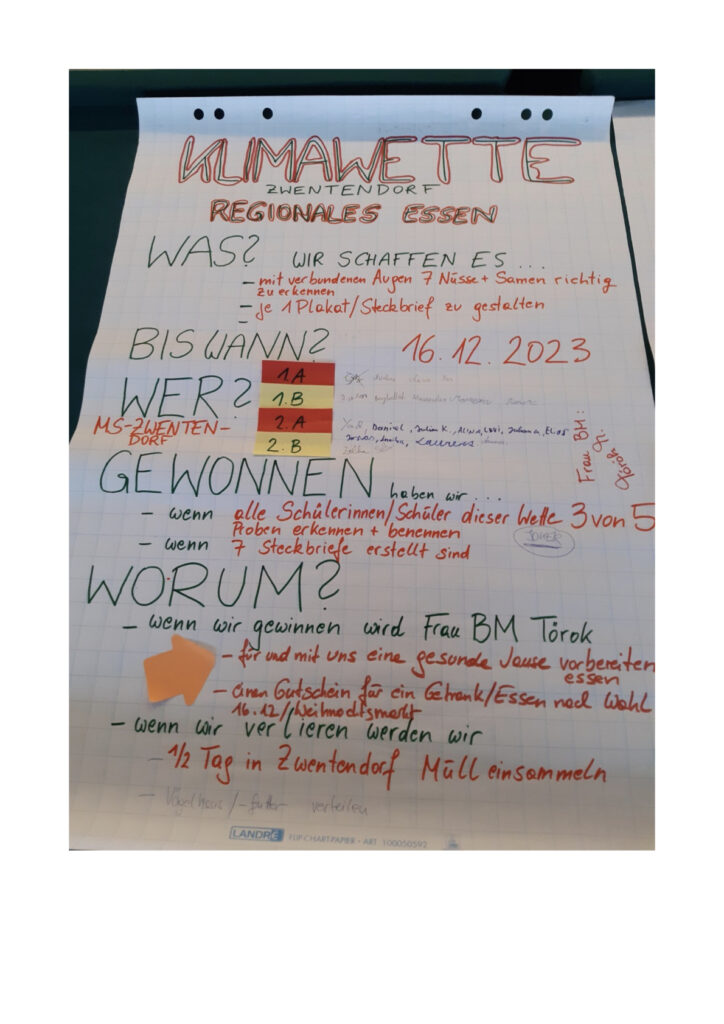 KLIMAWETTE
ZWENTENDORF
REGIONALES ESSEN
WAS? WIR SCHAFFEN ES...
- mit verbundenen Augen 7 Nüsse + Samen richtig
zu erkennen
- je 1 Plakat/Steckbrief zu gestalten
BIS WANN? 16.12.2023
WER?
1.A
1.B
2.A
2.B
MS-ZWENTEN-
DORF
Daniel, Julian K.,
Laurens
Frau BM:
Török
GEWONNEN haben wir...
- wenn alle Schülerinnen/Schüler dieser Wette 3 von 5
Proben erkennen + benennen
JOKER
- wenn 7 Steckbriefe erstellt sind
WORUM?
- wenn wir gewinnen wird Frau BM Török
- für und mit uns eine gesunde Jause vorbereiten
essen
- einen Gutschein für ein Getränk/Essen nach Wahl
16.12/Weihnachtsmarkt
- wenn wir verlieren werden wir
- 1/2 Tag in Zwentendorf Müll einsammeln
- Vogelhaus/-futter verteilen
LANDRÉ FLIPCHART-PAPIER - ART. 100050592